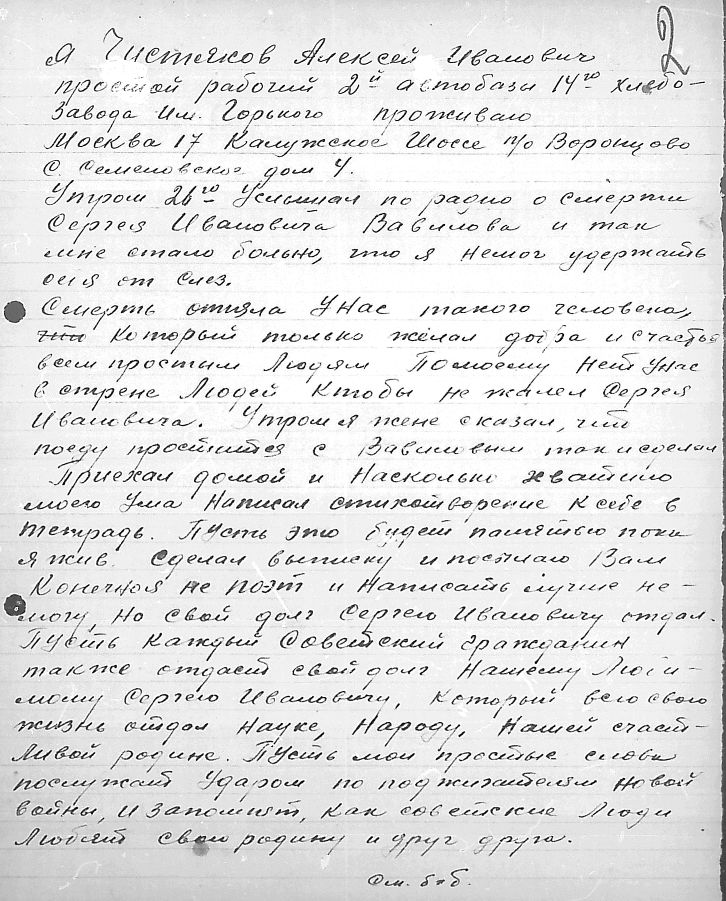 2
Я Чистяков Алексей Иванович
простой рабочий 2й автобазы 14го хлебо-
завода Им. Горького проживаю
Москва 17 Калужское Шоссе п/о Воронцово
С. Семеновское дом 4.
Утром 26го Услышал по радио о смерти
Сергея Ивановича Вавилова и так
мне стало больно, что я немог удержать
себя от слез.
Смерть отняла Унас такого человека,
что который только желал добра и счастья
всем простым Людям Помоему нет Унас
в стране Людей Ктобы не жалел Сергея
Ивановича. Утром я жене сказал, что
поеду простится с Вавиловым так и сделал
Приехал домой и Насколько хватило
моего Ума Написал стихотворение Ксебе в
тетрадь. Пусть это будет памятью пока
я жив. Сделал выписку и посылаю Вам
Конечноя не поэт и Написать лучше не-
могу, Но свой долг Сергею Ивановичу отдал.
Пусть Каждый Советский гражданин
также отдаст свой долг Нашему Люби-
мому Сергею Ивановичу, Который всю свою
жизнь отдал Науке, Народу, Нашей счаст-
ливой родине. Пусть мои простые слова
послужат Ударом по поджигателям Новой
войны, и запомнят, Как советские Люди
Любят свою родину и друг друга.
См. б-б.